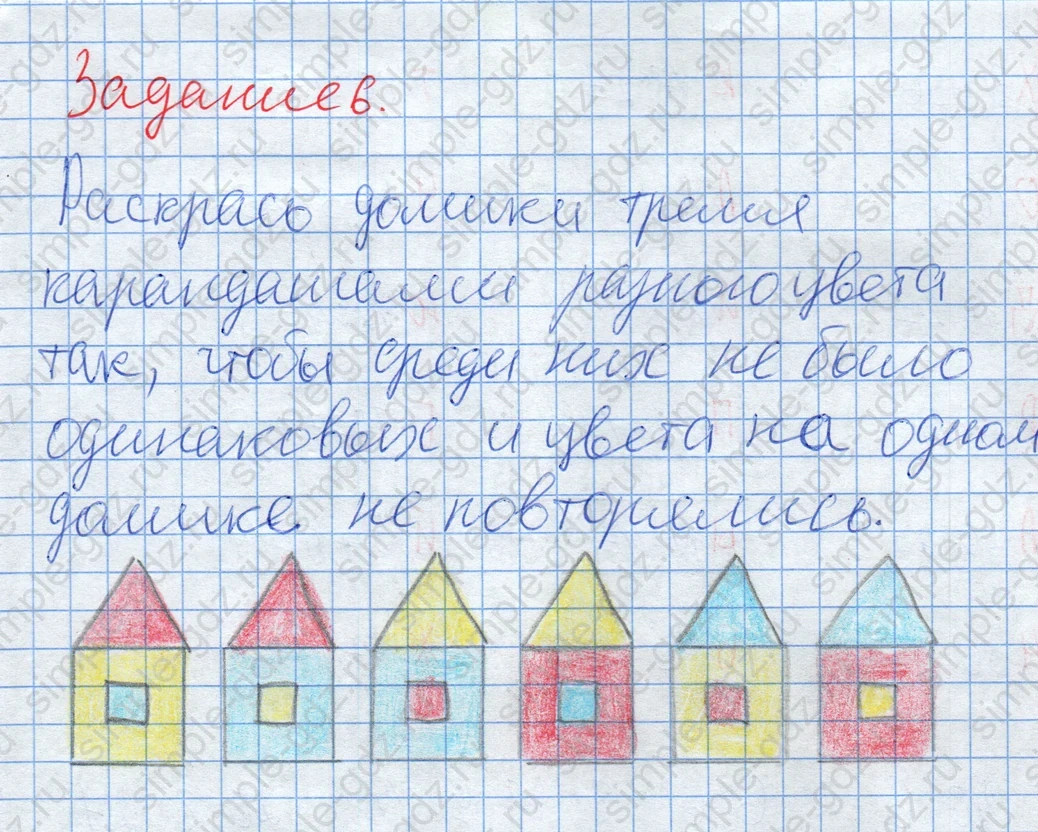 Задание 6.
Раскрась домики тремя
карандашами разного цвета
так, чтобы среди них не было
одинаковых и цвета на одном
домике не повторялись.
simple-gdz.ru